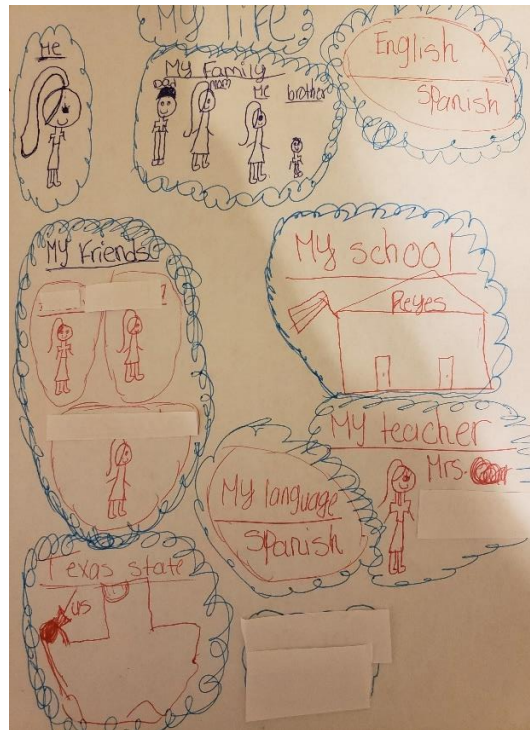 My life
Me
My Family
Dad
Mom
Me
brother
English
Spanish
My Friends
My school
Reyes
My teacher
Mrs.
My language
Spanish
Texas state
us